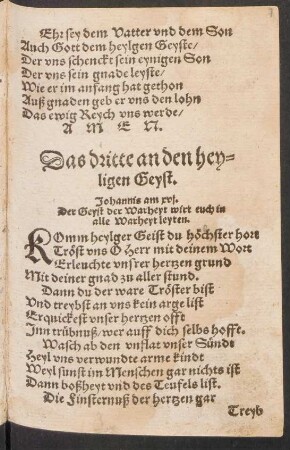 Ehr sey dem Vatter vnd dem Son
Auch Gott dem heylgen Geyste/
Der vns schenckt sein eynigen Son
Der vns sein gnade leyste/
Wie er im anfang hat gethon
Auß gnaden geb er vns den lohn
Das ewig Reych vns werde/
A M E N.
Das dritte an den hey-
ligen Geyst.
Johannis am xvj.
Der Geyst der Warheyt wirt euch in
alle Warheyt leyten.
KOmm heylger Geist du höchster hort
Tröst vns O Herr mit deinem Wort
Erleuchte vnsrer hertzen grund
Mit deiner gnad zu aller stund.
Dann du der ware Tröster bist
Vnd treybst an vns kein arge list
Erquickest vnser hertzen offt
Inn trübnuß/ wer auff dich selbs hofft.
Wasch ab den vnflat vnser Sünde
Heyl vns verwundte arme kindt
Weyl sunst im Menschen gar nichts ist
Dann boßheyt vnd des Teufels list.
Die Finsternuß der hertzen gar
Treyb